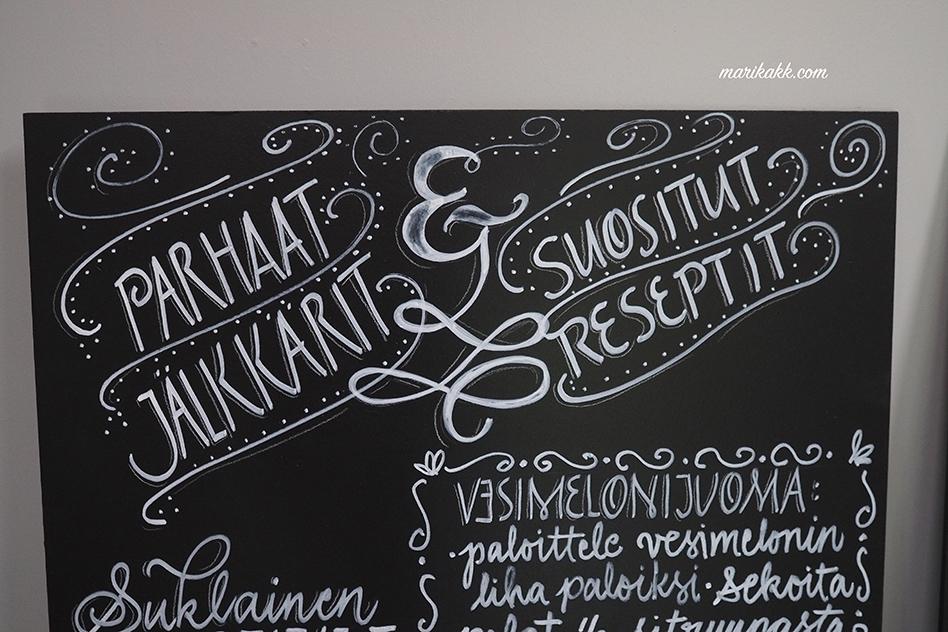 marikakk.com
PARHAAT
JÄLKKÄRIT
&
SUOSITUT
RESEPTIT
VESIMELONIJUOMA:
paloittele vesimelonin
liha paloiksi. Sekoita
Suklainen